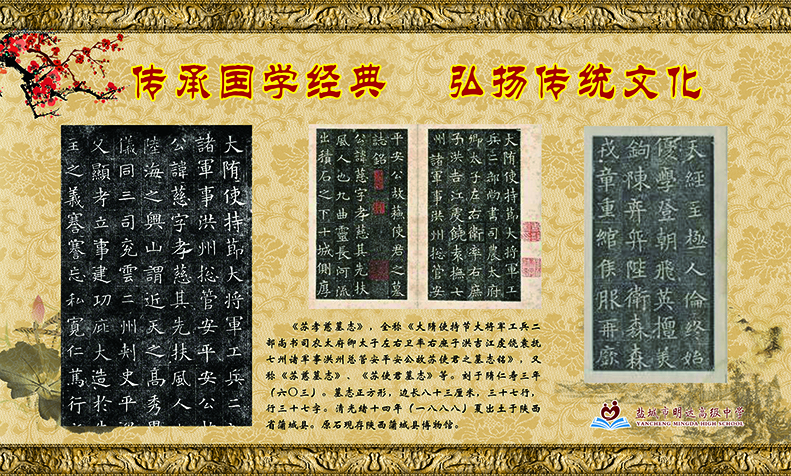 传承国学经典 弘扬传统文化
大隋使持節大將軍工兵二
諸軍事洪州揔管安平安公
公諱慈字孝慈其先扶風人
陸海之奥山謂近天之高秀
儀同三司兖雲二州刾史平
父顯考立事建功庇大造於
王之義謇謇忘私寬仁篤行
大隋使持節大將軍工
兵二部尚書司農太府
卿太子左右衛率右庶
子洪吉江虔饒袁撫七
州諸軍事洪州揔管安
平安公故蘓使君之墓
誌銘
公諱慈字孝慈其先扶
風人也九曲靈長河流
出積石之下十城側厚
天經至極人倫終始
優學登朝飛英擅美
鉤陳弈弈陛衛森森
戎章重綰侯服再
《苏孝慈墓志》，全称《大隋使持节大将军工兵二
部尚书司农太府卿太子左右卫率右庶子洪吉江虔饶袁抚
七州诸军事洪州总管安平安公故苏使君之墓志铭》，又
称《苏慈墓志》、《苏使君墓志》等。刻于隋仁寿三年
（六〇三）。墓志正方形，边长八十三厘米，三十七行，
行三十七字。清光绪十四年（一八八八）夏出土于陕西
省蒲城县。原石现存陕西蒲城县博物馆。
盐城市明达高级中学
YANCHENG MINGDA HIGH SCHOOL